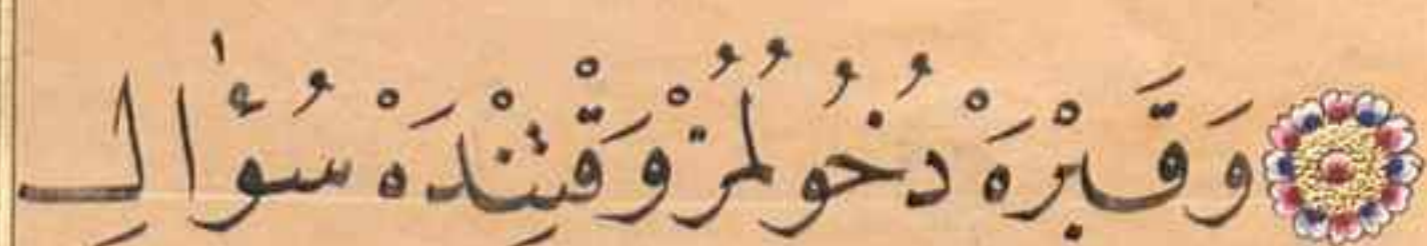 وَقَبْرَهْ دُخُولُمُزْ وَقْتِنْدَهْ سُؤٰالِ